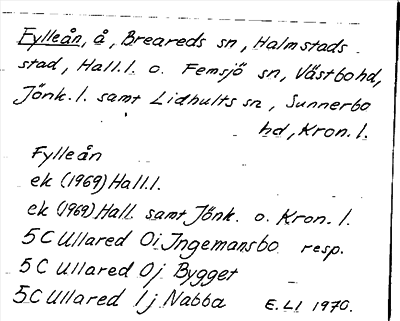 Fylleån, å, Breareds sn, Halmstads
stad, Hall.l. o. Femsjö sn, Västbo hd,
Jönk.l. samt Lidhults sn, Sunnerbo
hd, Kron.l.
Fylleån
ek (1969) Hall.l.
ek (1969) Hall. samt Jönk. o. Kron.l.
5C Ullared 0i Ingemansbo resp.
5C Ullared 0j Bygget
5C Ullared 1j Nabba E.Ll 1970.